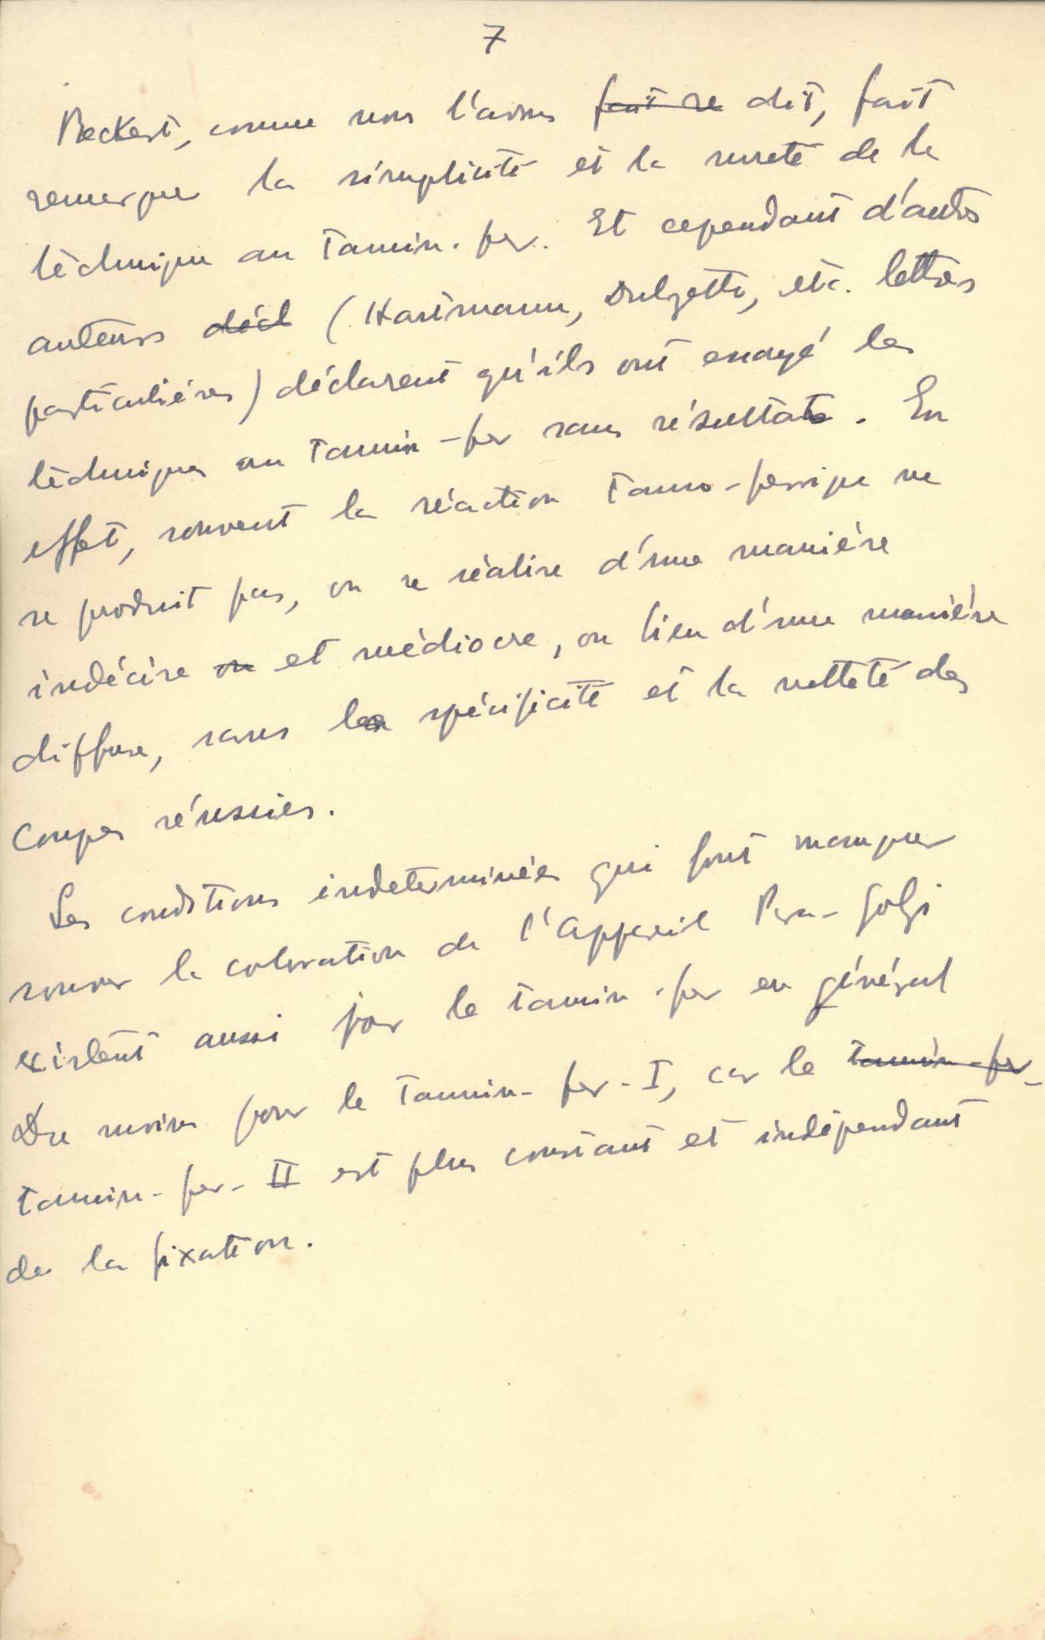 7
Beckert, comme nous l'avons fait re dit, fait
remarquer la simplicité et la sureté de la
téchnique au Tannin-fer. Et cependant d'autres
auteurs décl (Hartmann, Dulzetto, etc. lettres
particuliéres) déclarent qu'ils ont essayé les
téchniques au Tannin-fer sans résultats. En
effet, souvent la réaction Tanno-ferrique ne
se produit pas, ou se réalise d'une maniére
indécise ou et médiocre, ou bien d'une maniére
diffuse, sans la spécificité et la netteté des
coupes réussies.
Les conditions indeterminées qui font manquer
souvent la coloration de l'appareil Para-Golgi
existent aussi par le tannin-fer en général
Du moins pour le Tannin-fer-I, car le tannin-fer-
tannin-fer-II est plus constant et indépendant
de la fixation.